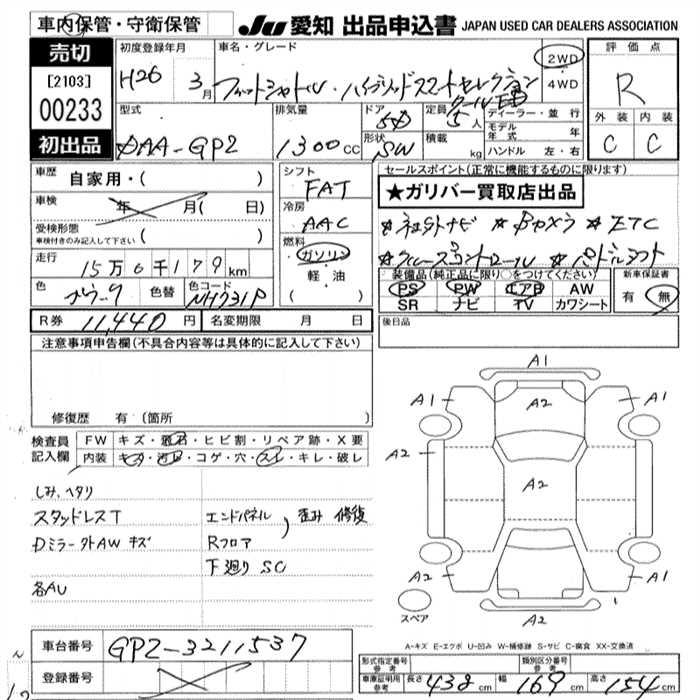 車内保管・守衛保管
JU 愛知 出品申込書 JAPAN USED CAR DEALERS ASSOCIATION
売切
[2103]
00233
初出品
初度登録年月
H26 3月
車名・グレード
フィットシャトル・ハイブリッドスマートセレクション
クールED
2WD
4WD
評価点
R
外装 内装
C C
型式
DAA-GP2
排気量
1300cc
ドア
5D
形状
SW
定員
5人
積載
kg
ディーラー・並行
モデル年式 年
ハンドル 左・右
車歴
自家用・( )
車検
年 月( 日)
受検形態
車検付きのみ記入して下さい ( )
走行
15万0千179km
色
ブラック
色替
色コード
NH731P
シフト
FAT
冷房
AAC
燃料
ガソリン
軽・油
( )
セールスポイント(正常に機能するものに限ります)
★ガリバー買取店出品
★社外ナビ ★Bカメラ ★ETC
★クルーズコントロール ★パドルシフト
装備品(純正品に限り○をつけてください)
PS PW エアB AW
SR ナビ TV カワシート
新車保証書
有 無
R券 11,440円
名変期限 月 日
後日品
注意事項申告欄(不具合内容等は具体的に記入して下さい)
修復歴 有(箇所
検査員
記入欄
FW キズ・飛石・ヒビ割・リペア跡・X要
内装 キズ・汚れ・コゲ・穴・スレ・キレ・破レ
しみ、ヘタリ
スタッドレスT
DミラータトAWキズ
各AU
エンドパネル
Rフロア
歪み 修復
下廻りSC
A1
A1
A2
A1
A2
A2
A2
A2
A2
A1
A2
スペア
A-キズ E-エクボ U-凹み W-補修跡 S-サビ C-腐食 XX-交換済
車台番号 GP2-3211537
登録番号
形式指定番号
参考
類別区分番号
参考
車庫証明用
参考
長さ 438cm
幅 169cm
高さ 154cm